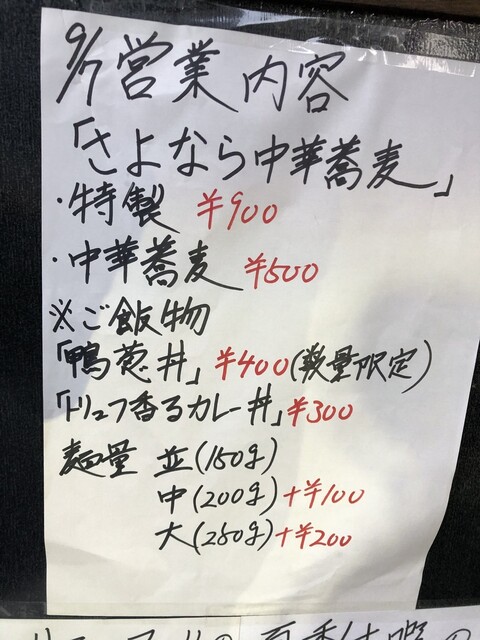 9/7営業内容
「さよなら中華蕎麦」
・特製 ¥900
・中華蕎麦 ¥500
※ご飯物
「鴨葱丼」¥400(数量限定)
「トリュフ香るカレー丼」¥300
麺量 並(150g)
中(200g)+¥100
大(250g)+¥200